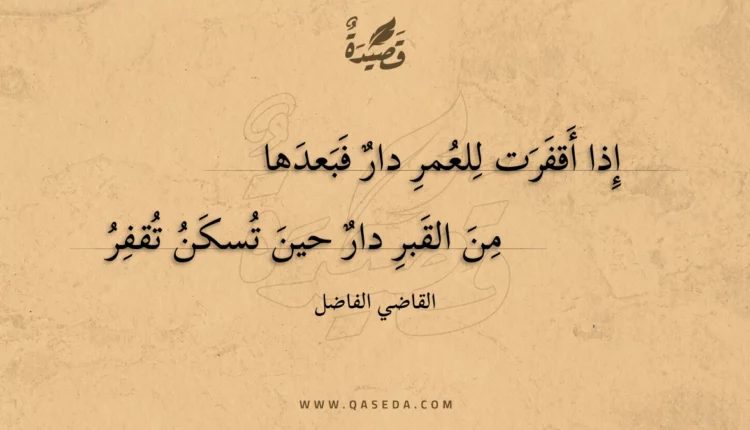 قَصِيدَةٌ
إِذا أَقفَرَت لِلعُمرِ دارٌ فَبَعدَها
مِنَ القَبرِ دارٌ حينَ تُسكَنُ تُقفِرُ
القاضي الفاضل
WWW.QASEDA.COM